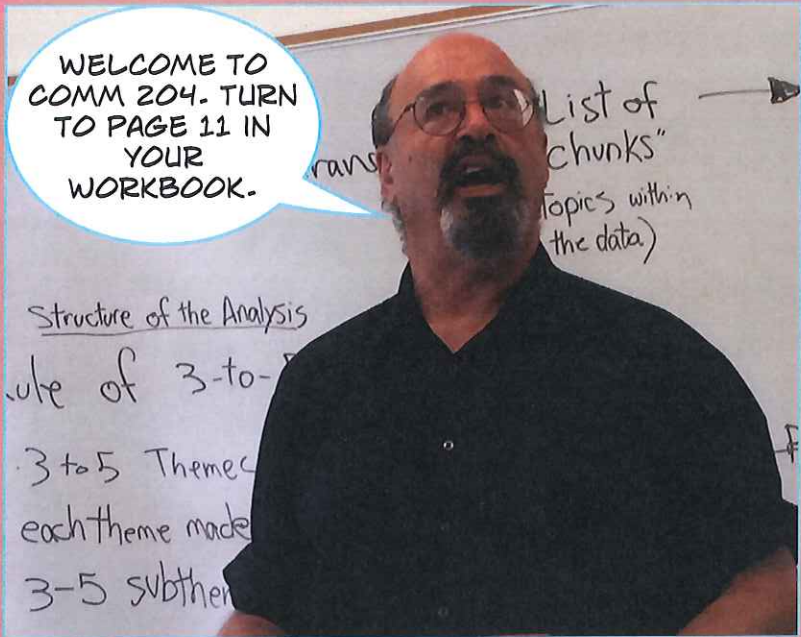 WELCOME TO
COMM 204. TURN
TO PAGE 11 IN
YOUR
WORKBOOK.
List of
chunks"
Topics within
the data)
Structure of the Analysis
of 3-to-
3 to 5
each theme made
3-5